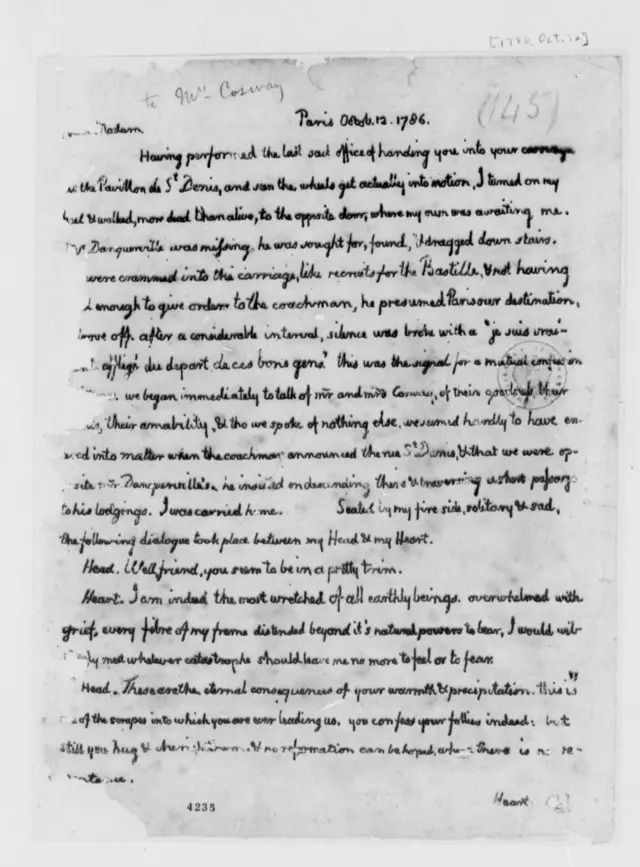 [1786, Oct. 12]
to Mrs. Cosway
(145)
Paris Octob. 12. 1786.
Madam
Having performed the last sad office of handing you into your carriage
at the Pavillon de St. Denis, and seen the wheels get actually into motion, I turned on my
heel & walked, more dead than alive, to the opposite door, where my own was awaiting me.
Danquerville was missing. he was sought for, found, & dragged down stairs.
were crammed into the carriage, like recruits for the Bastille, & not having
enough to give orders to the coachman, he presumed Paris our destination,
drove off. after a considerable interval, silence was broke with a "je suis vrai-
affligé du depart de ces bons gens." this was the signal for a mutual confession
we began immediately to talk of Mr. and Mrs. Cosway, of their goodness, their
their amability, & tho we spoke of nothing else, we seemed hardly to have en-
tered into matter when the coachman announced the rue St. Denis, & that we were op-
posite Mr. Danquerville's. he insisted on descending there & traversing a short passage
to his lodgings. I was carried home. Seated by my fire side, solitary & sad,
the following dialogue took place between my Head & my Heart.
Head. Well, friend, you seem to be in a pretty trim.
Heart. I am indeed the most wretched of all earthly beings. overwhelmed with
grief, every fibre of my frame distended beyond it's natural powers to bear, I would wil-
lingly meet whatever catastrophe should leave me no more to feel or to fear.
Head. These are the eternal consequences of your warmth & precipitation. this is
of the scrapes into which you are ever leading us. you confess your follies indeed: but
still you hug & cherish them, & no reformation can be hoped, where there is no re-
pentance.
Heart
4235